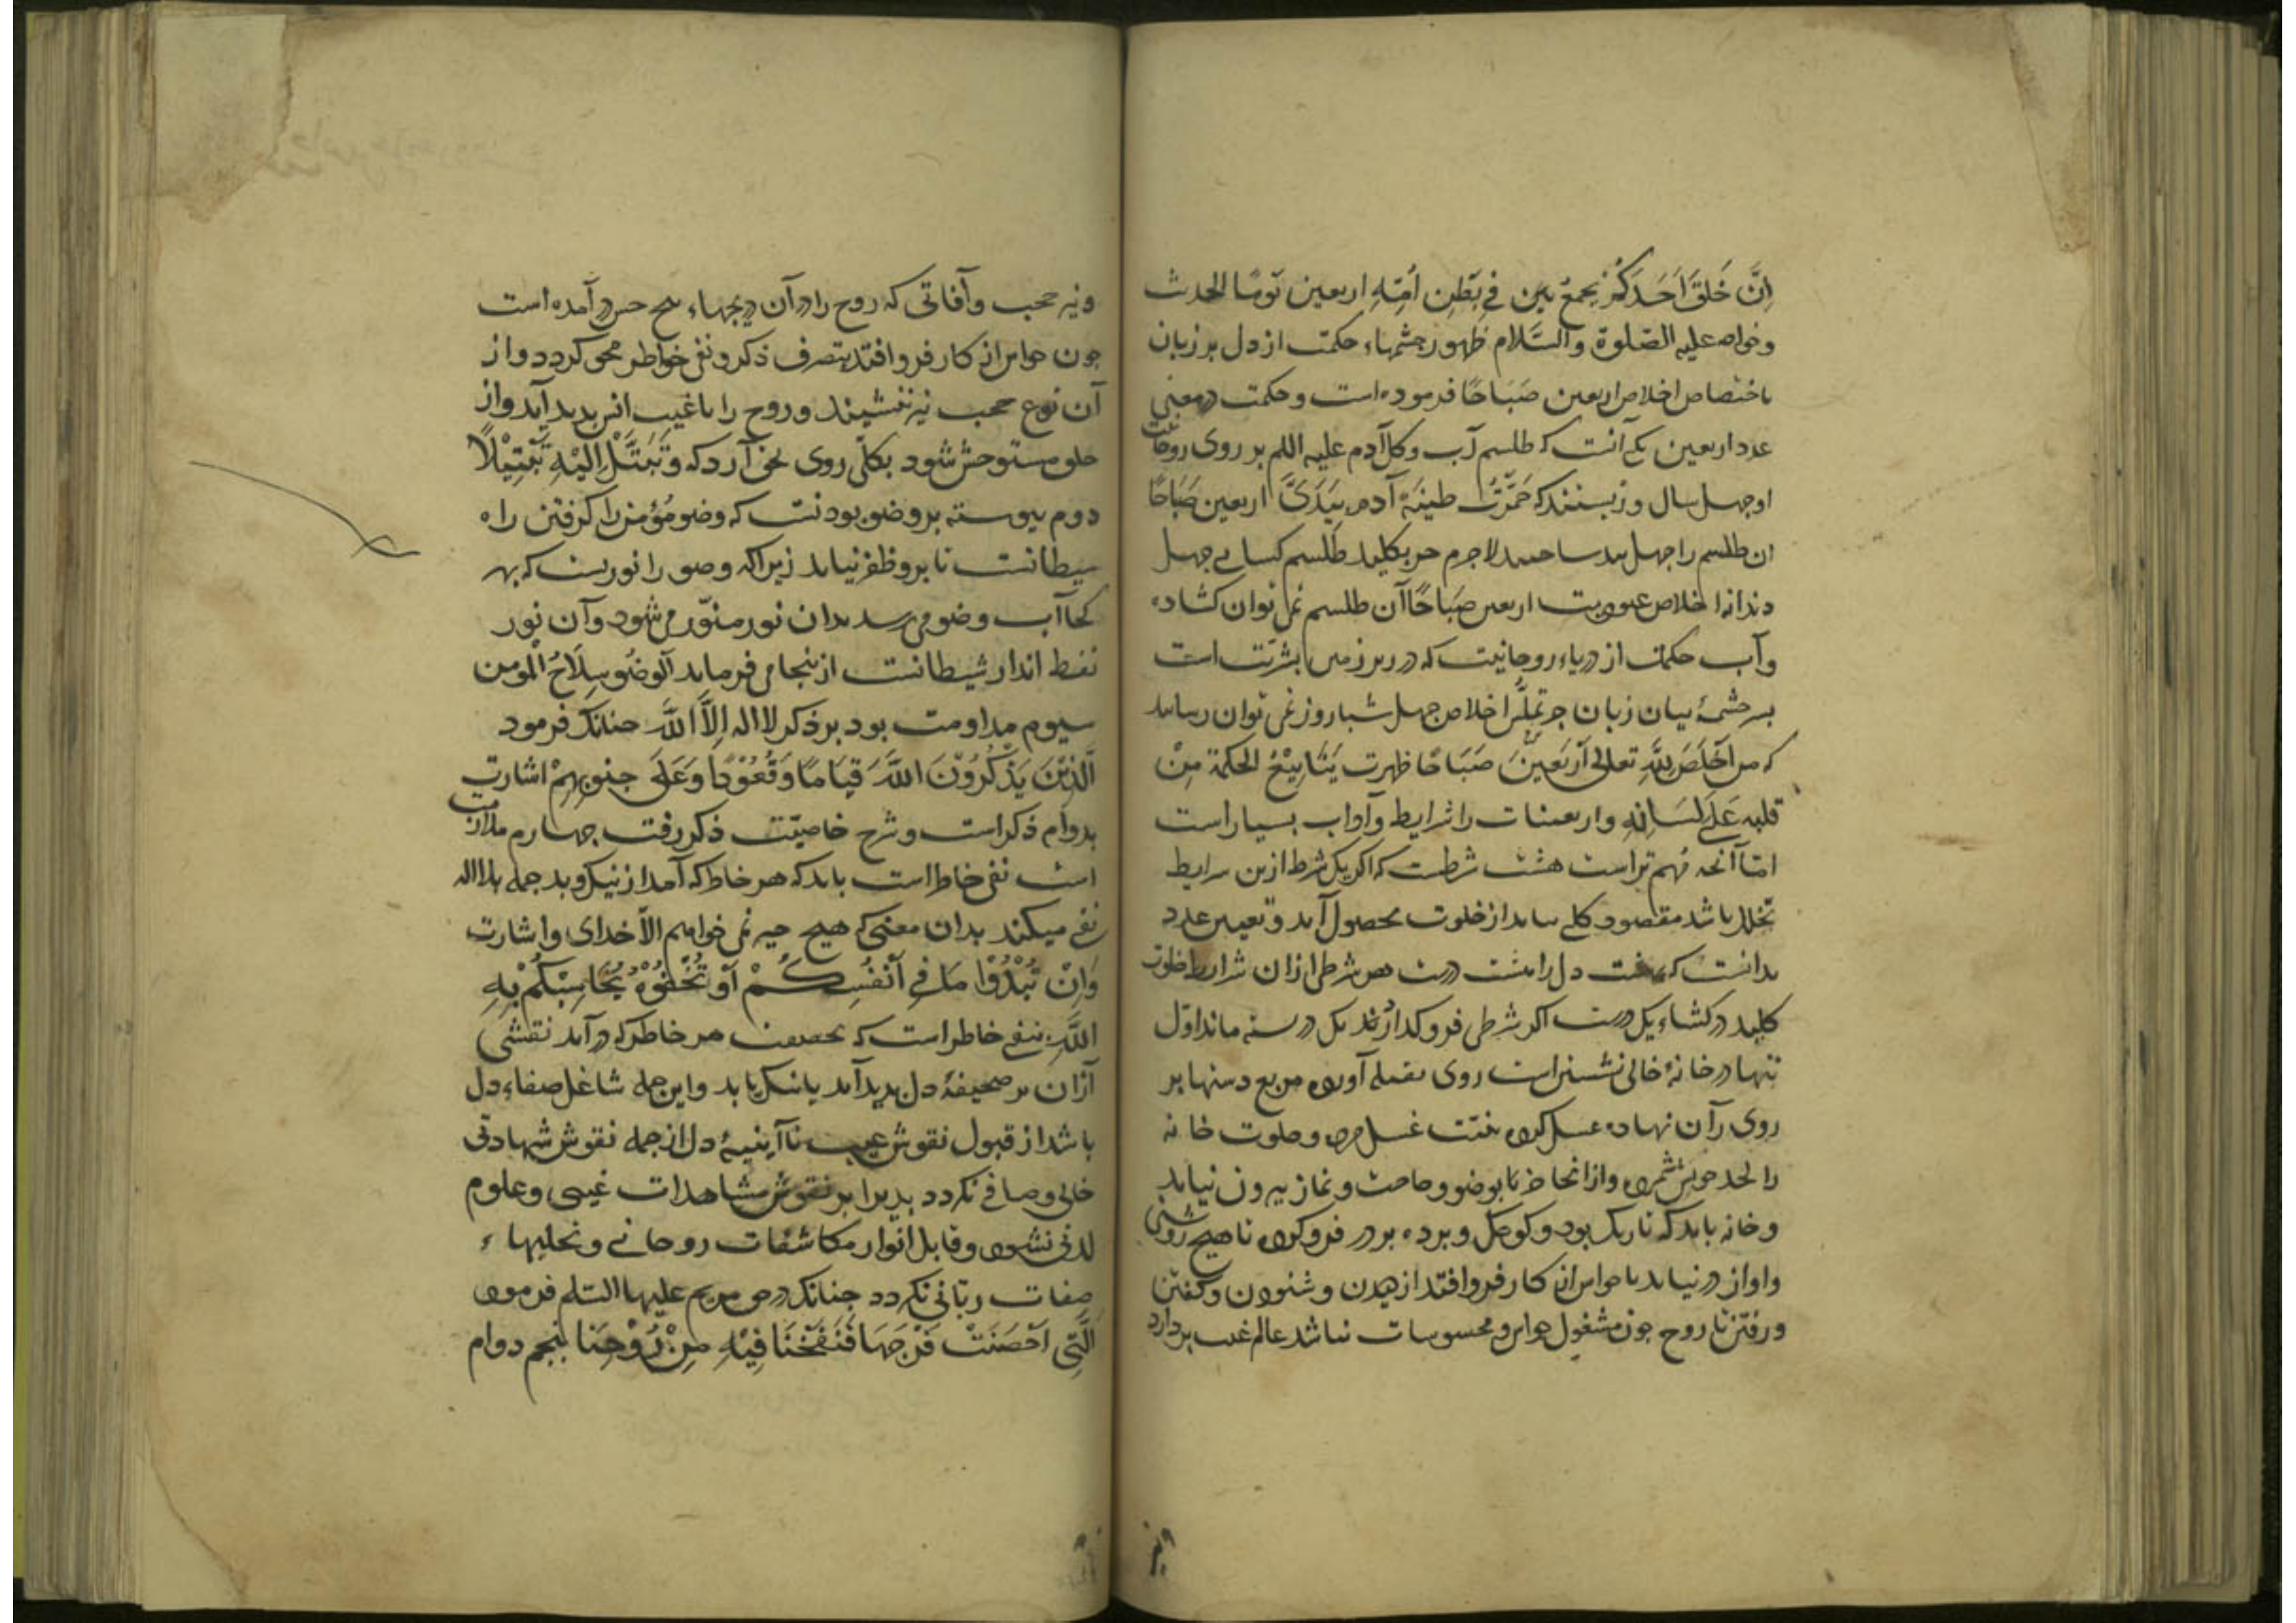 اِنَّ خَلَقَ اَحَدَكُمْ یجمعُ فِی بَطْنِ اُمِّهِ اربعین یَومًا الحدیث
وخواجه علیه الصّلوة والسّلام ظهور چشمهاء حکمت از دل بر زبان
باختصاص اخلاص اربعین صَبَاحًا فرموده است وحکمت در معنی
عدد اربعین یکی آنست که طلسم آب وگل آدم علیه السلم بر روی روحانیت
او چهل سال ... که خَمَّرْتُ طینَةَ آدم بِیَدَیَّ اربعین صَبَاحًا
ان طلسم را چهل بند ساختند لاجرم جز بکلید طلسم گشایی چهل
دندانه اخلاص عبودیت اربعین صَبَاحًا آن طلسم نمی توان گشاد
وآب حکمت از دریاء روحانیت که در زیر زمین بشریّت است
بسرچشمهٔ بیان زبان جز ... اخلاص چهل شباروز نمی توان رسانید
که من اَخْلَصَ لِلّهِ تعالی اَرْبَعینَ صَبَاحًا ظهرت یَنَابِیْعُ الحکمة مِنْ
قلبه عَلَی لِسَانِهِ واربعینات را شرایط وآداب بسیار است
امّا آنچه مُهم تر است هشت شرطست که اگر یک شرط ازین شرایط
بخلل باشد مقصود کلی ... از خلوت بحصول آید و تعیین عدد
بدانست که هشت دل را هشت درست هر شرطی ازان شرایط خلوت
کلید در گشاء یک درست اگر شرطی فرو گذارند یک در بسته ماند اوّل
تنها در خانهٔ خالی نشستن است روی بقبله آورده مربع دستها بر
روی ران نهاده غسل کرده بنیّت غسل مرده وخلوت خانه
را لحد خویش شمرده وازانجا جز با بوضو وحاجت ونماز بیرون نیاید
وخانه باید که تاریک بود وکوچک وپرده بر در فرو کرده تا هیچ روشنی
واواز در نیاید تا حواس از کار فرو افتد از دیدن وشنودن وگفتن
ورفتن تا روح چون مشغول حواس ومحسوسات نباشد عالم غیب بردارد
ونیز حجب وآفاتی که روح را در آن دریچهاء پنج حس در آمده است
چون حواس از کار فرو افتد بتصرف ذکر ونفی خواطر محو گردد واز
آن نوع حجب نیز ننشیند وروح را باغیب انس پدید آید واز
خلق مستوحش شود بکلّی روی بحق آرد که وَتَبَتَّلْ اِلَیْهِ تَبْتِیْلًا
دوم پیوسته بر وضو بودنست که وضو مُؤمن را گرفتن راه
شیطانست تا برو ظفر نیابد زیراکه وضو را نوریست که بهر
کجا آب وضو می رسد بدان نور منوّر می شود وآن نور
نفط انداز شیطانست ازینجا می فرماید الوضُو سِلَاحُ الْمُومن
سیوم مداومت بود بر ذکر لا اله اِلَّا اللّٰه چنانک فرمود
اَلَّذِیْنَ یَذْكُرُوْنَ اللّٰهَ قِیَامًا وَقُعُوْدًا وَعَلَی جنوبِهِمْ اشارت
بدوام ذکر است وشرح خاصیّت ذکر رفت چهارم ملازمت
است نفی خاطر است باید که هر خاطر که آمد از نیک وبد جمله بلا اله
نفی میکند بدان معنی که هیچ چیز نمی خواهم الّا خدای واشارت
وَاِنْ تُبْدُوْا مَا فِی اَنْفُسِكُمْ اَوْ تُخْفُوْهُ یُحَاسِبْكُمْ بِهِ
اللّٰهُ بنفی خاطر است که بحقیقت هر خاطر که در آید نقشی
ازان بر صحیفهٔ دل پدید آید یا نیک یا بد واین جمله شاغل صفاء دل
باشد از قبول نقوش غیب تا آینهٔ دل از جمله نقوش شهادتی
خالی وصافی نگردد پذیراء بر نقوش مشاهدات غیبی وعلوم
لدنّی نشود وقابل انوار مکاشفات روحانی وتجلیهاء
صفات ربّانی نگردد چنانک در حق مریم علیها السّلم فرمود
اَلَّتِی اَحْصَنَتْ فَرْجَهَا فَنَفَخْنَا فِیْهِ مِنْ رُوْحِنَا پنجم دوام